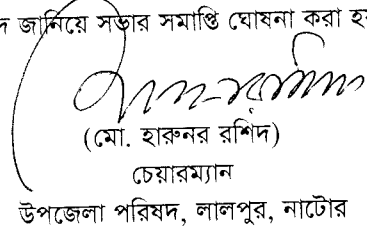 জানিয়ে সভার সমাপ্তি ঘোষনা করা
(মো. হারুনর রশিদ)
চেয়ারম্যান
উপজেলা পরিষদ, লালপুর, নাটোর